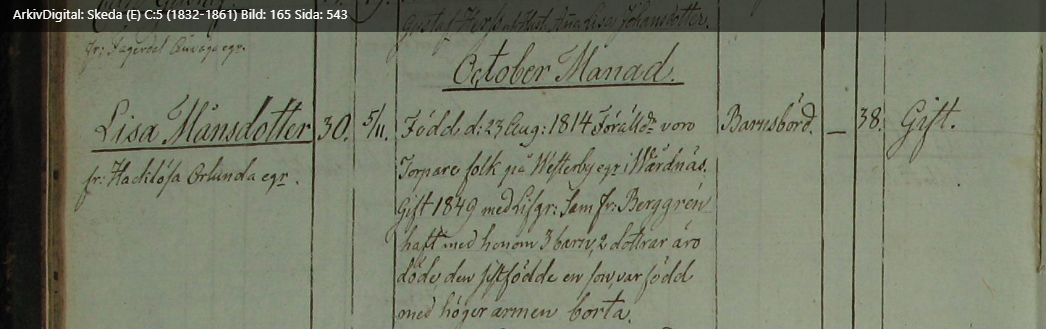 ArkivDigital: Skeda (E) C:5 (1832-1861) Bild: 165 Sida: 543
Gustaf Hustr. Anna Lisa Johansdotter.
fr: Fagerdal egr.
October Månad.
Lisa Månsdotter 30. 5/11. Född d: 23 Aug: 1814 Föräldr voro Barnsbörd. — 38. Gift.
fr: Hacklösa Örlunda egr. Torpare folk på Westerby egr i Wårdnäs.
Gift 1849 med Lifgr: Sam fr: Berggrén
haft med honom 3 barn, 2 döttrar äro
döde, den sistfödde en son, var född
med höger armen borta.